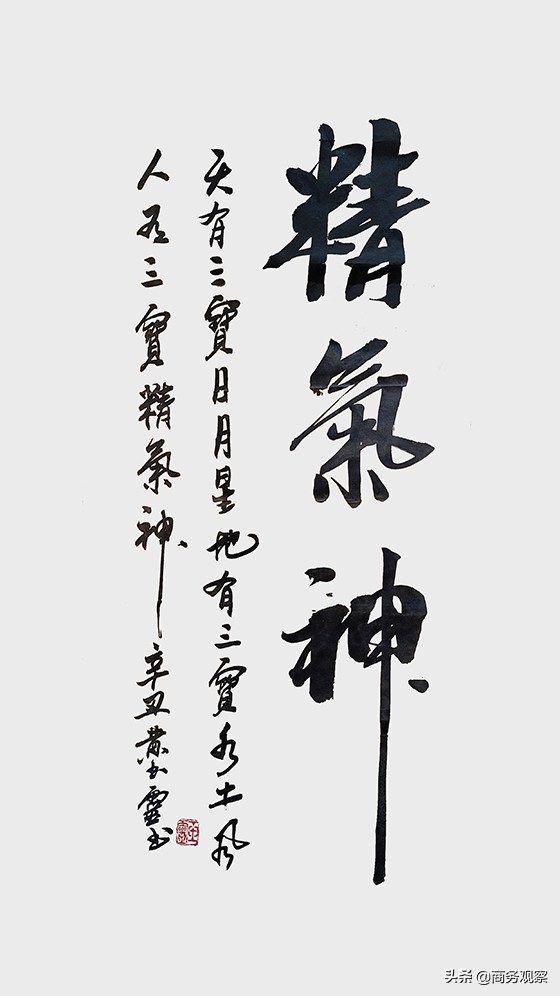 精氣神
天有三寶日月星地有三寶水土风
人有三寶精氣神 辛丑 书
头条 @商务观察